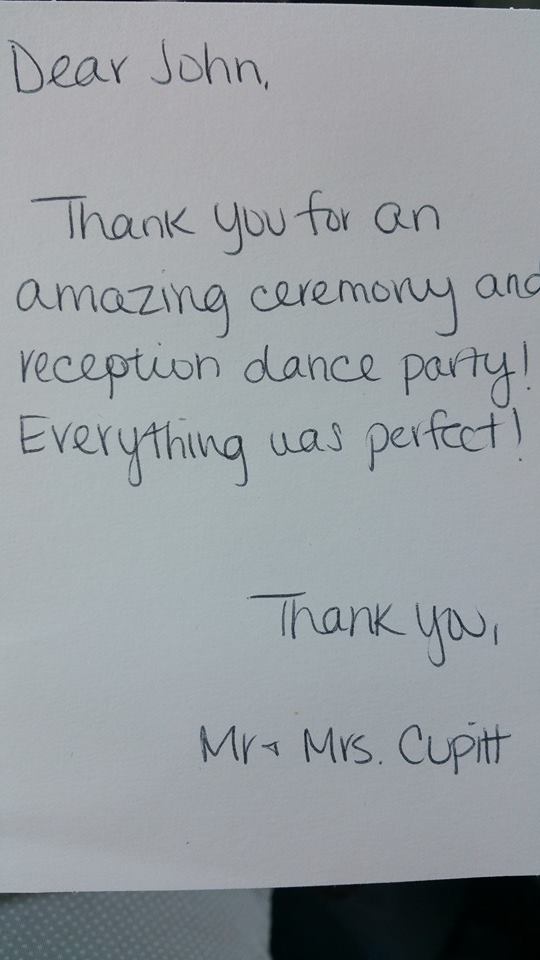 Dear John,
Thank you for an
amazing ceremony and
reception dance party!
Everything was perfect!
Thank you,
Mr & Mrs. Cupitt